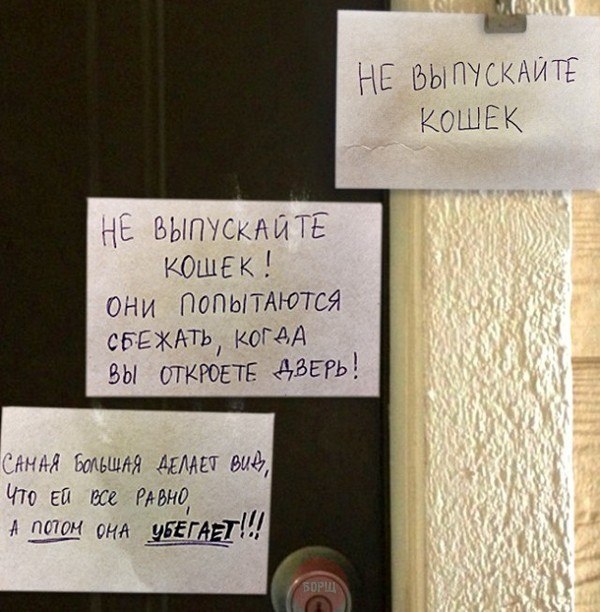 НЕ ВЫПУСКАЙТЕ
КОШЕК
НЕ ВЫПУСКАЙТЕ
КОШЕК!
ОНИ ПОПЫТАЮТСЯ
СБЕЖАТЬ, КОГДА
ВЫ ОТКРОЕТЕ ДВЕРЬ!
САМАЯ БОЛЬШАЯ ДЕЛАЕТ ВИД,
ЧТО ЕЙ ВСЕ РАВНО,
А ПОТОМ ОНА УБЕГАЕТ!!!
БОРЩ